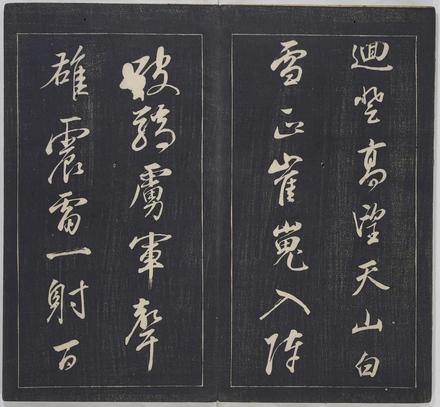 迴登高望天山白
雪正崔嵬入陣
破驕虜軍聲
雄震雷一射百